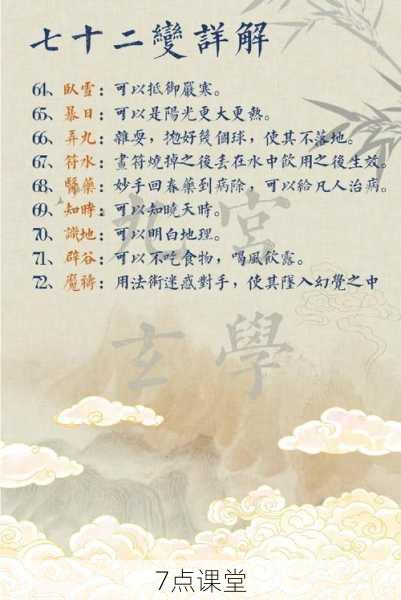 七十二變詳解
64、臥雪：可以抵御嚴寒。
65、暴日：可以是陽光更大更熱。
66、弄丸：雜耍，抛好幾個球，使其不落地。
67、符水：畫符燒掉之後丢在水中飲用之後生效。
68、醫藥：妙手回春藥到病除，可以給凡人治病。
69、知時：可以知曉天時。
70、識地：可以明白地理。
71、辟谷：可以不吃食物，喝風飲露。
72、魘禱：用法術迷惑對手，使其墜入幻覺之中
九宮
玄學
7点课堂